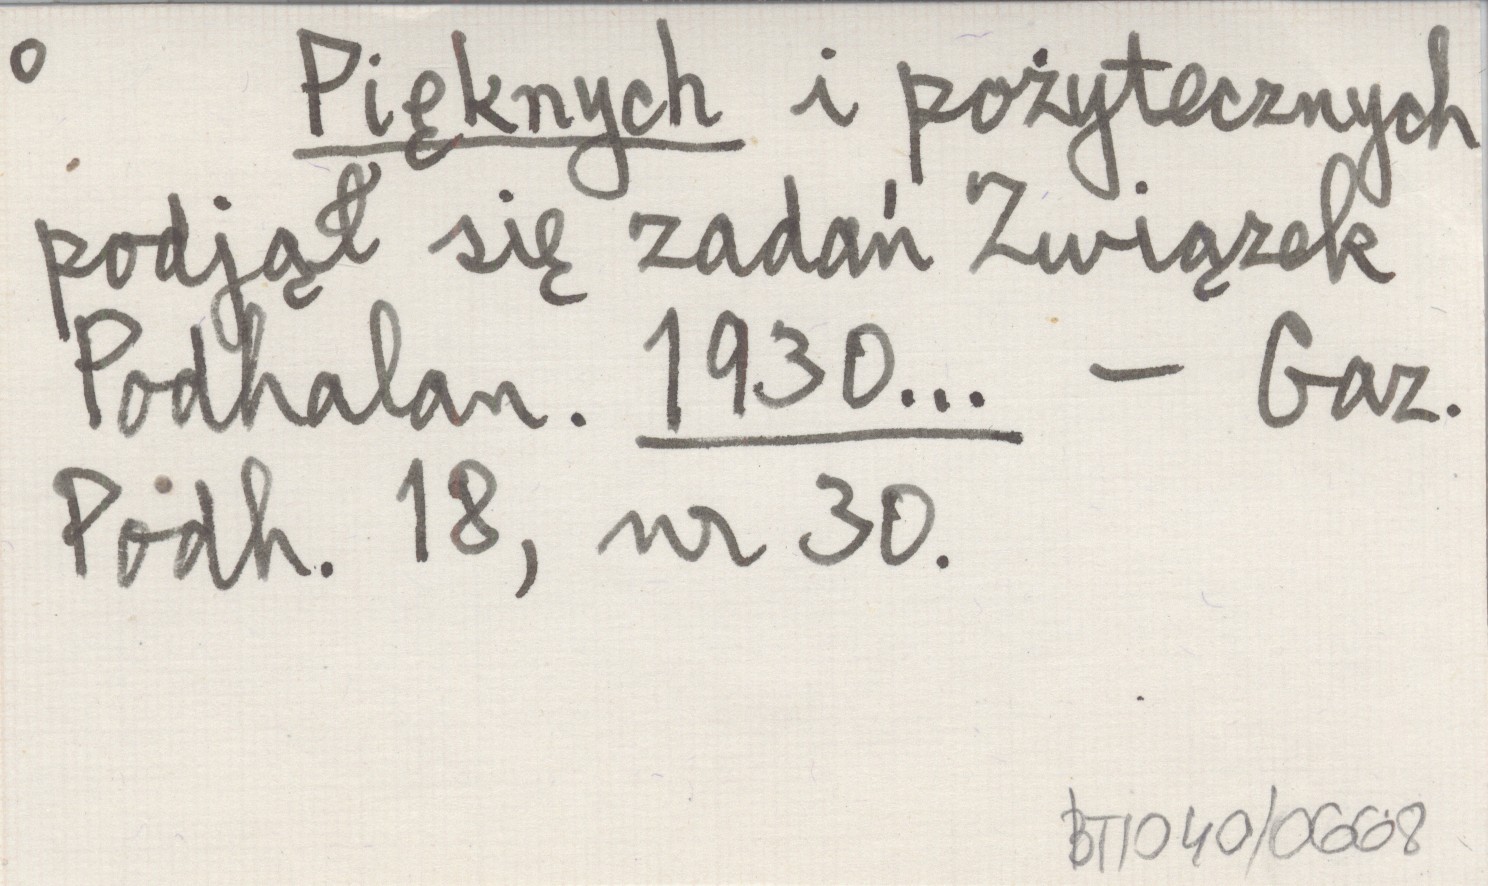 o Pięknych i pożytecznych
podjął się zadań Związek
Podhalan. 1930... — Gaz.
Podh. 18, nr 30.
BT1040/0668